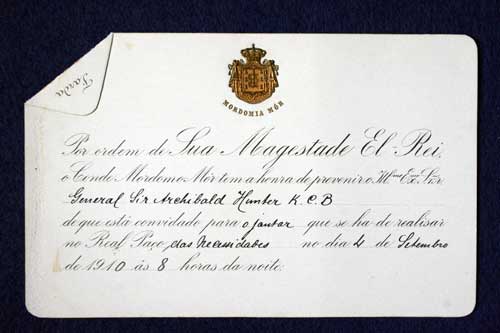 Farda
MORDOMIA MÓR
Por ordem de Sua Magestade El-Rei,
o Conde Mordomo-Mór tem a honra de prevenir o Illmo Exmo Snr
General Sir Archibald Hunter K.C.B
de que está convidado para o jantar que se ha de realisar
no Real Paço das Necessidades no dia 4 de Setembro
de 1910 ás 8 horas da noite.